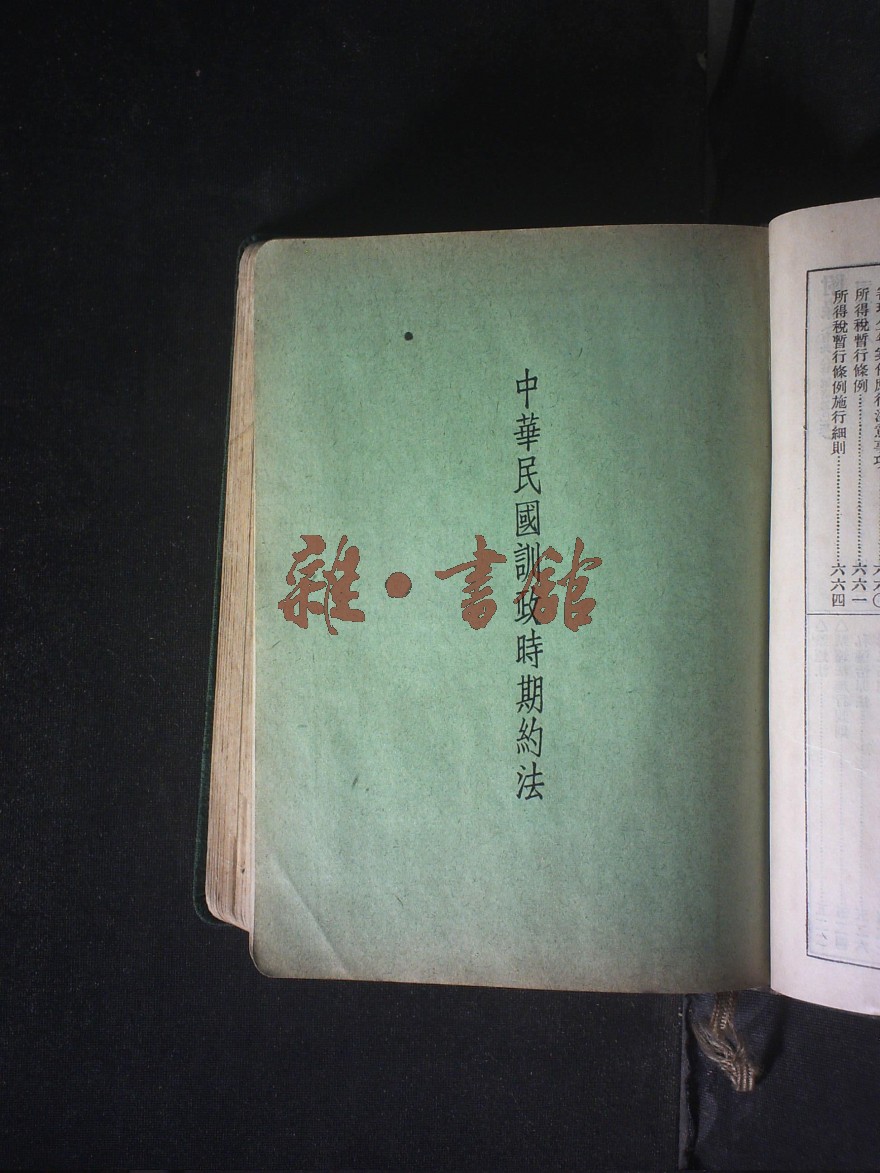 所得稅暫行條例……六六一
所得稅暫行條例施行細則……六六四
中華民國訓政時期約法
雜·書館